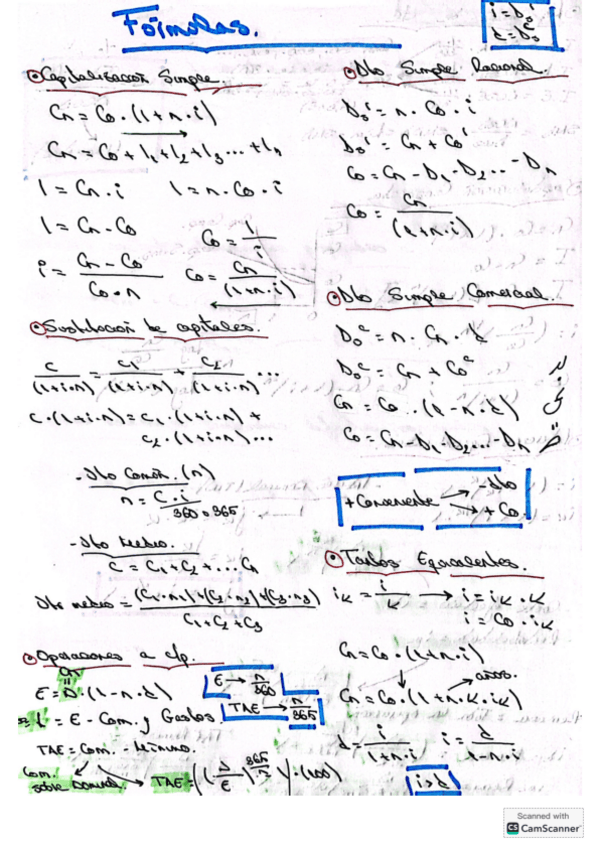 Fórmulas.
i = D₀ⁱ
d = D₀ᶜ
Capitalización Simple.
Cn = C0 · (1 + n · i)
Cn = C0 + I1 + I2 + I3 ... + In
I = Cn · i    I = n · C0 · i
I = Cn - C0
C0 = I / i
i = (Cn - C0) / (C0 · n)
C0 = Cn / (1 + n · i)
Sustitución de capitales.
C / (1+i·n) = C1 / (1+i·n) + C2 / (1+i·n) ...
C · (1+i·n) = C1 · (1+i·n) +
C2 · (1+i·n) ...
- Vto Común. (n)
n = C · i / 360 o 365
- Vto Medio.
C = C1 + C2 + ... Cn
Vto medio = (C1·n1)+(C2·n2)+(C3·n3) / C1 + C2 + C3
Operaciones a c/p.
Cn
"
E = N · (1 - n · d)
E → n/360
L = E - Com. y Gastos.
TAE → n/365
TAE = Com. - Mínimo.
Com. sobre Nominal
TAE = ((N/E)^365/n ) · (100)
Dto Simple Racional.
D₀ⁱ = n · C0 · i
D₀ⁱ = Cn + C0ⁱ
C0 = Cn - D1 - D2 ... - Dn
C0 = Cn / (1+n·i)
Dto Simple Comercial.
D₀ᶜ = n · Cn · d
D₀ᶜ = Cn + C0ᶜ
Cn = C0 · (1 - n · d)
C0 = Cn - D1 - D2 ... - Dn
+ Conveniente → - Dto
→ + C0
Tantos Equivalentes.
iK = i / K → i = iK · K
i = C0 · iK
Cn = C0 · (1+n·i)
años.
Cn = C0 · (1 + n · K · iK)
d = i / 1+n·i    i = d / 1-n·i
i > d
Scanned with
CS CamScanner